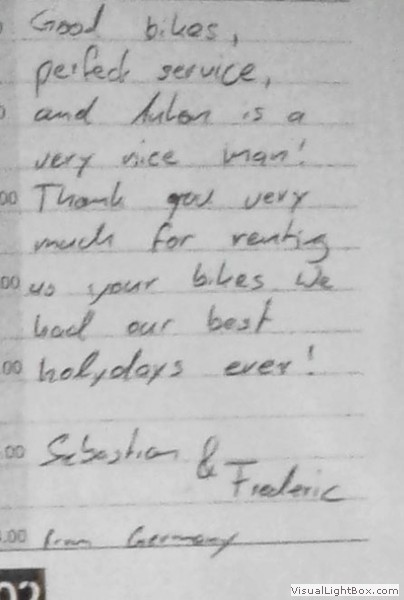 Good bikes,
perfect service,
and Anton is a
very nice man!
00 Thank you very
much for renting
00 us your bikes We
had our best
00 holydays ever!
00 Sebastian & Frederic
.00 from Germany
VisualLightBox.com